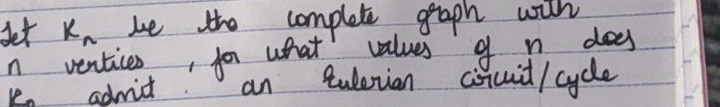 Let Kn be the complete graph with
n vertices, for what values of n does
Kn admit. an Eulerian circuit/cycle